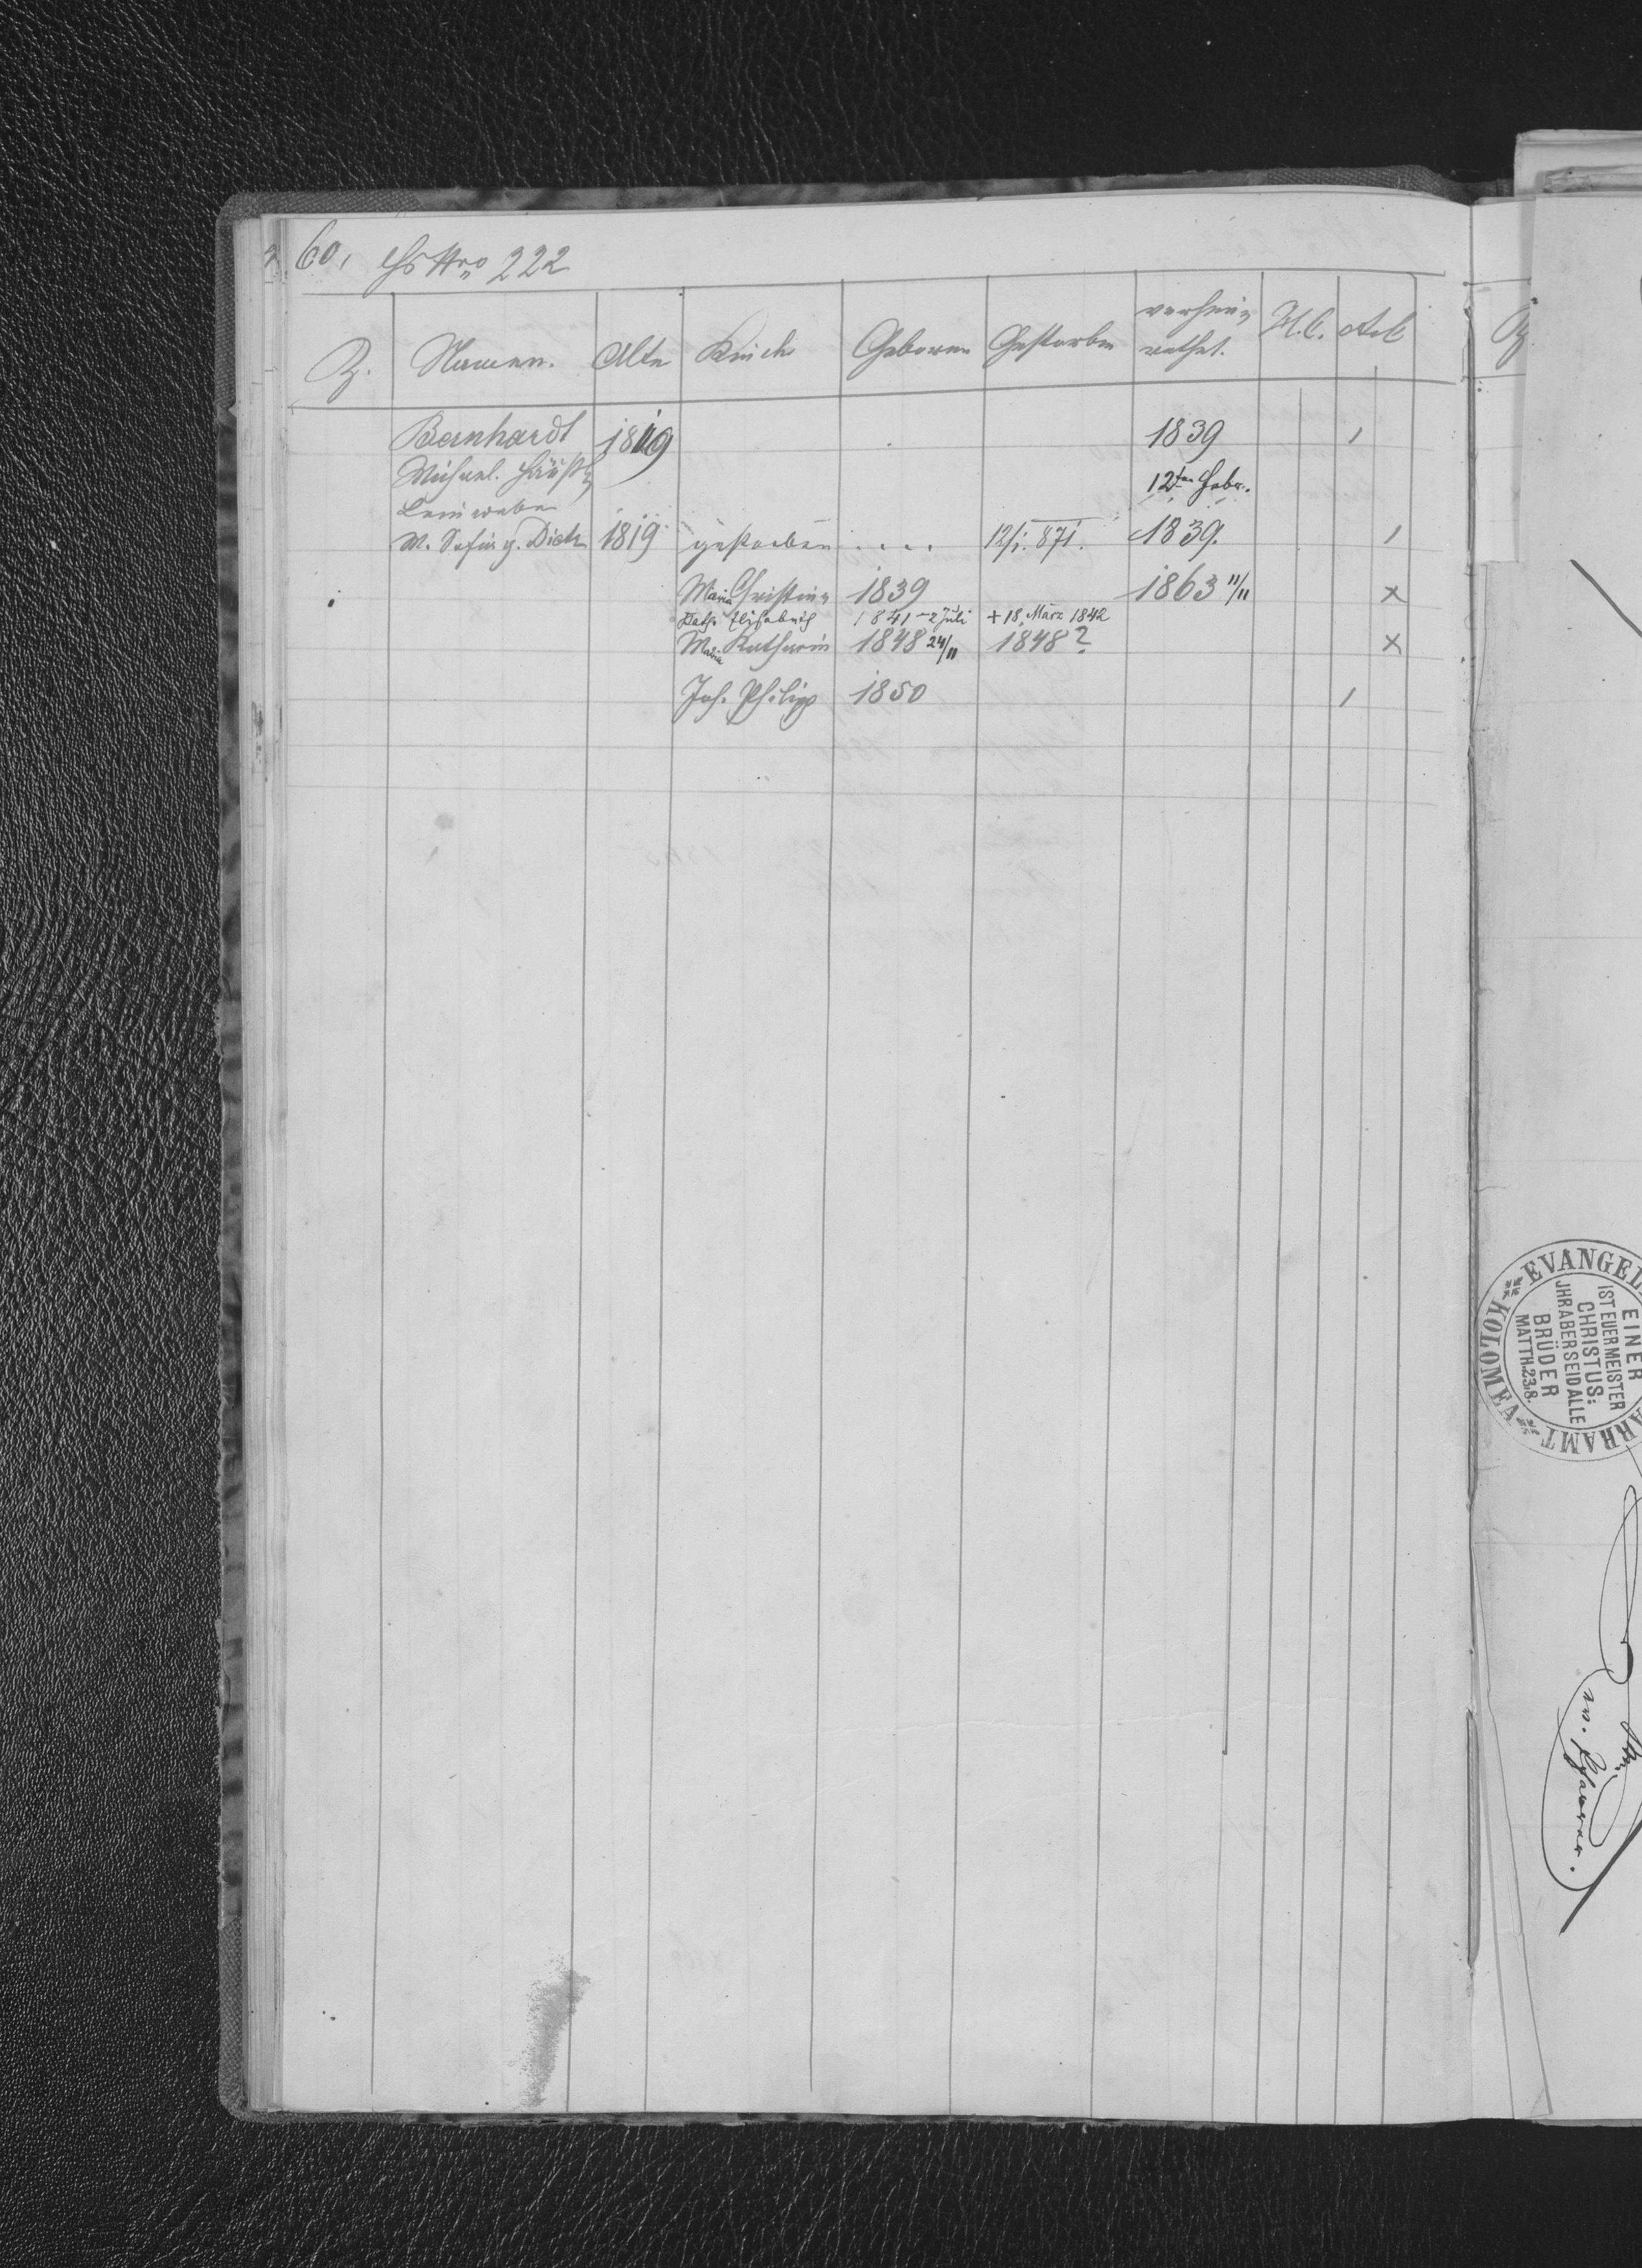 60, Hs Nro 222
Z. Namen. Alter Kinder Geboren Gestorben verhei-
rathet. H.C. A.C.
Bernhardt 1819 1839 /
Michael. Häusl. 12ten Febr.
Leinweber
W. Sofia g. Dick 1819 gestorben .... 12/1. 871. 1839. /
Maria Christina 1839 1863 11/11 x
Kath. Elisabeth 1841 - 2 Juli + 18. März 1842
Maria Katharin 1848 24/11 1848? x
Joh. Philipp 1850 /
Z
EVANGEL
ARRAMT
KOLOMEA
EINER
IST EUER MEISTER
CHRISTUS:
JHR ABER SEID ALLE
BRÜDER
MATTH. 23.8.
Pfarrer.